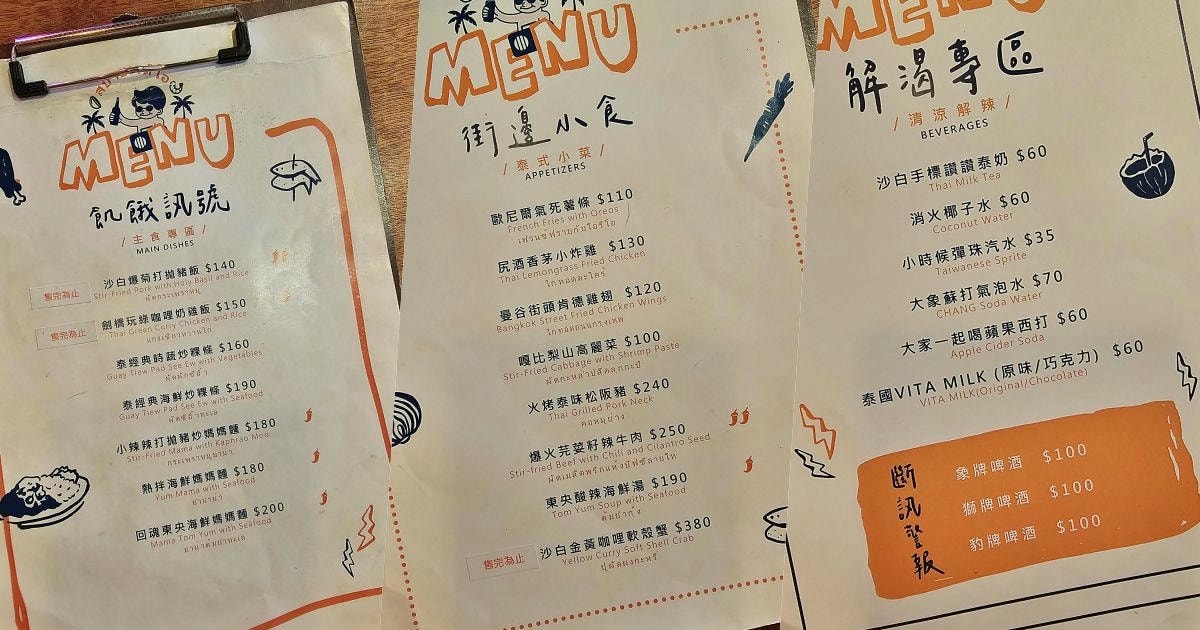 MENU
飢餓訊號
/ 主食專區 /
MAIN DISHES
沙白爆菊打拋豬飯 $140
Stir-Fried Pork with Holy Basil and Rice
ผัดกระเพราหมู
售完為止
劍橋玩綠咖哩奶雞飯 $150
Thai Green Curry Chicken and Rice
แกงเขียวหวานไก่
售完為止
泰經典時蔬炒粿條 $160
Guay Tiew Pad See Ew with Vegetables
ผัดผักซีอิ๊ว
泰經典海鮮炒粿條 $190
Guay Tiew Pad See Ew with Seafood
ผัดซีอิ๊วทะเล
小辣辣打拋豬炒媽媽麵 $180
Stir-Fried Mama with Kaphrao Moo
กระเพราหมูมาม่า
熱拌海鮮媽媽麵 $180
Yum Mama with Seafood
ยำมาม่า
回魂東央海鮮媽媽麵 $200
Mama Tom Yum with Seafood
มาม่าต้มยำทะเล
MENU
街邊小食
/ 泰式小菜 /
APPETIZERS
歐尼爾氣死薯條 $110
French Fries with Oreos
เฟรนช์ฟรายกับโอรีโอ
尻酒香茅小炸雞 $130
Thai Lemongrass Fried Chicken
ไก่ทอดตะไคร้
曼谷街頭肯德雞翅 $120
Bangkok Street Fried Chicken Wings
ไก่ทอดถนนกรุงเทพ
嘎比梨山高麗菜 $100
Stir-Fried Cabbage with Shrimp Paste
ผัดกะหล่ำปลีคลุกกะปิ
火烤泰味松阪豬 $240
Thai Grilled Pork Neck
คอหมูย่าง
爆火芫荽籽辣牛肉 $250
Stir-fried Beef with Chili and Cilantro Seed
東央酸辣海鮮湯 $190
Tom Yum Soup with Seafood
ต้มยำกุ้ง
沙白金黃咖哩軟殼蟹 $380
Yellow Curry Soft Shell Crab
ปูผัดผงกะหรี่
售完為止
MENU
解渴專區
/ 清涼解辣 /
BEVERAGES
沙白手標讚讚泰奶 $60
Thai Milk Tea
消火椰子水 $60
Coconut Water
小時候彈珠汽水 $35
Taiwanese Sprite
大象蘇打氣泡水 $70
CHANG Soda Water
大家一起喝蘋果西打 $60
Apple Cider Soda
泰國VITA MILK (原味/巧克力) $60
VITA MILK(Original/Chocolate)
斷訊警報
象牌啤酒 $100
獅牌啤酒 $100
豹牌啤酒 $100